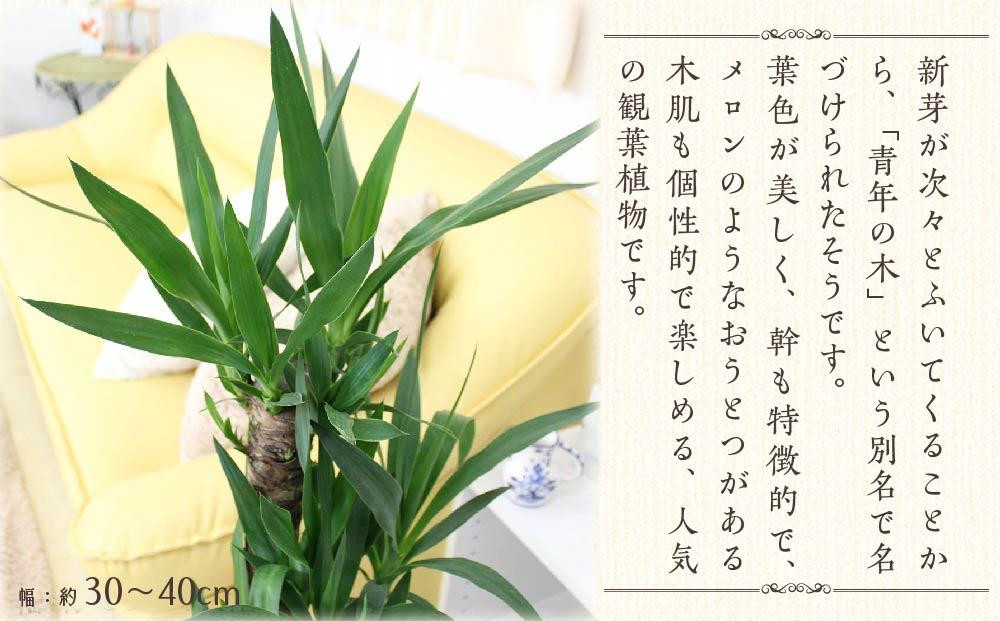 新芽が次々とふいてくることか
ら、「青年の木」という別名で名
づけられたそうです。
葉色が美しく、幹も特徴的で、
メロンのようなおうとつがある
木肌も個性的で楽しめる、人気
の観葉植物です。
幅：約30〜40cm